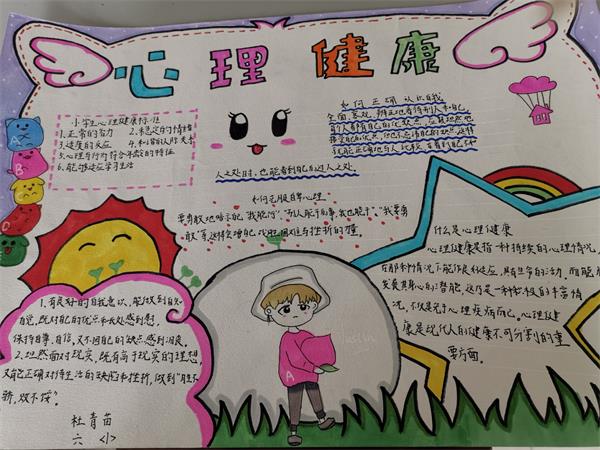 心理健康
小学生心理健康标准
1.正常的智力 2.稳定的情绪
3.适度的反应 4.和谐的人际关系
5.心理与行为符合年龄的特征
6.能够适应学习生活
如何正确认识自我
全面、客观、辩证地看待别人和自己,
人之处时,也能看到自己过人之处。
如何克服自卑心理
要勇敢地暗示自己"我能行","别人能干的事,我也能干","我要勇
敢"等,这样会增加战胜困难与挫折的
什么是心理健康
心理健康是指一种持续的心理情况,
在那种情况下能作良好适应,具有生命的活力,而能
发展其身心的潜能,这乃是一种积极的丰富情
况,不仅是免于心理疾病而已。心理健
康是现代人的健康不可分割的重
要方面。
1.有良好的自我意识,能做到自
觉,既对自己的优点和长处感到欣慰,
保持自尊、自信,又不因自己的缺点感到沮丧。
2.坦然面对现实,既有高于现实的理想,
又能正确对待生活的缺陷和挫折,做到"胜不
骄,败不馁"。
杜青苗
六 <1>
A